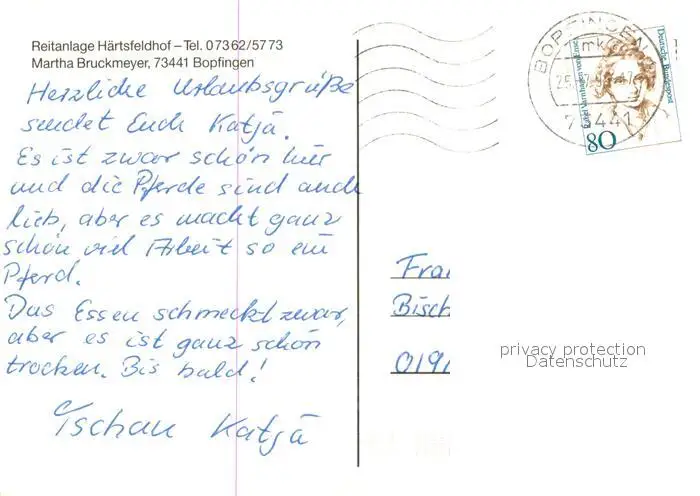 Reitanlage Härtsfeldhof – Tel. 07362/5773
Martha Bruckmeyer, 73441 Bopfingen
Herzliche Urlaubsgrüße
sendet Euch Katja.
Es ist zwar schön hier
und die Pferde sind auch
lieb, aber es macht ganz
schön viel Arbeit so ein
Pferd.
Das Essen schmeckt zwar,
aber es ist ganz schön
trocken. Bis bald!
Tschau Katja
BOPFINGEN
73441
Rahel Varnhagen von Ense
Deutsche Bundespost
80
Frau
Bisch
0191
privacy protection
Datenschutz